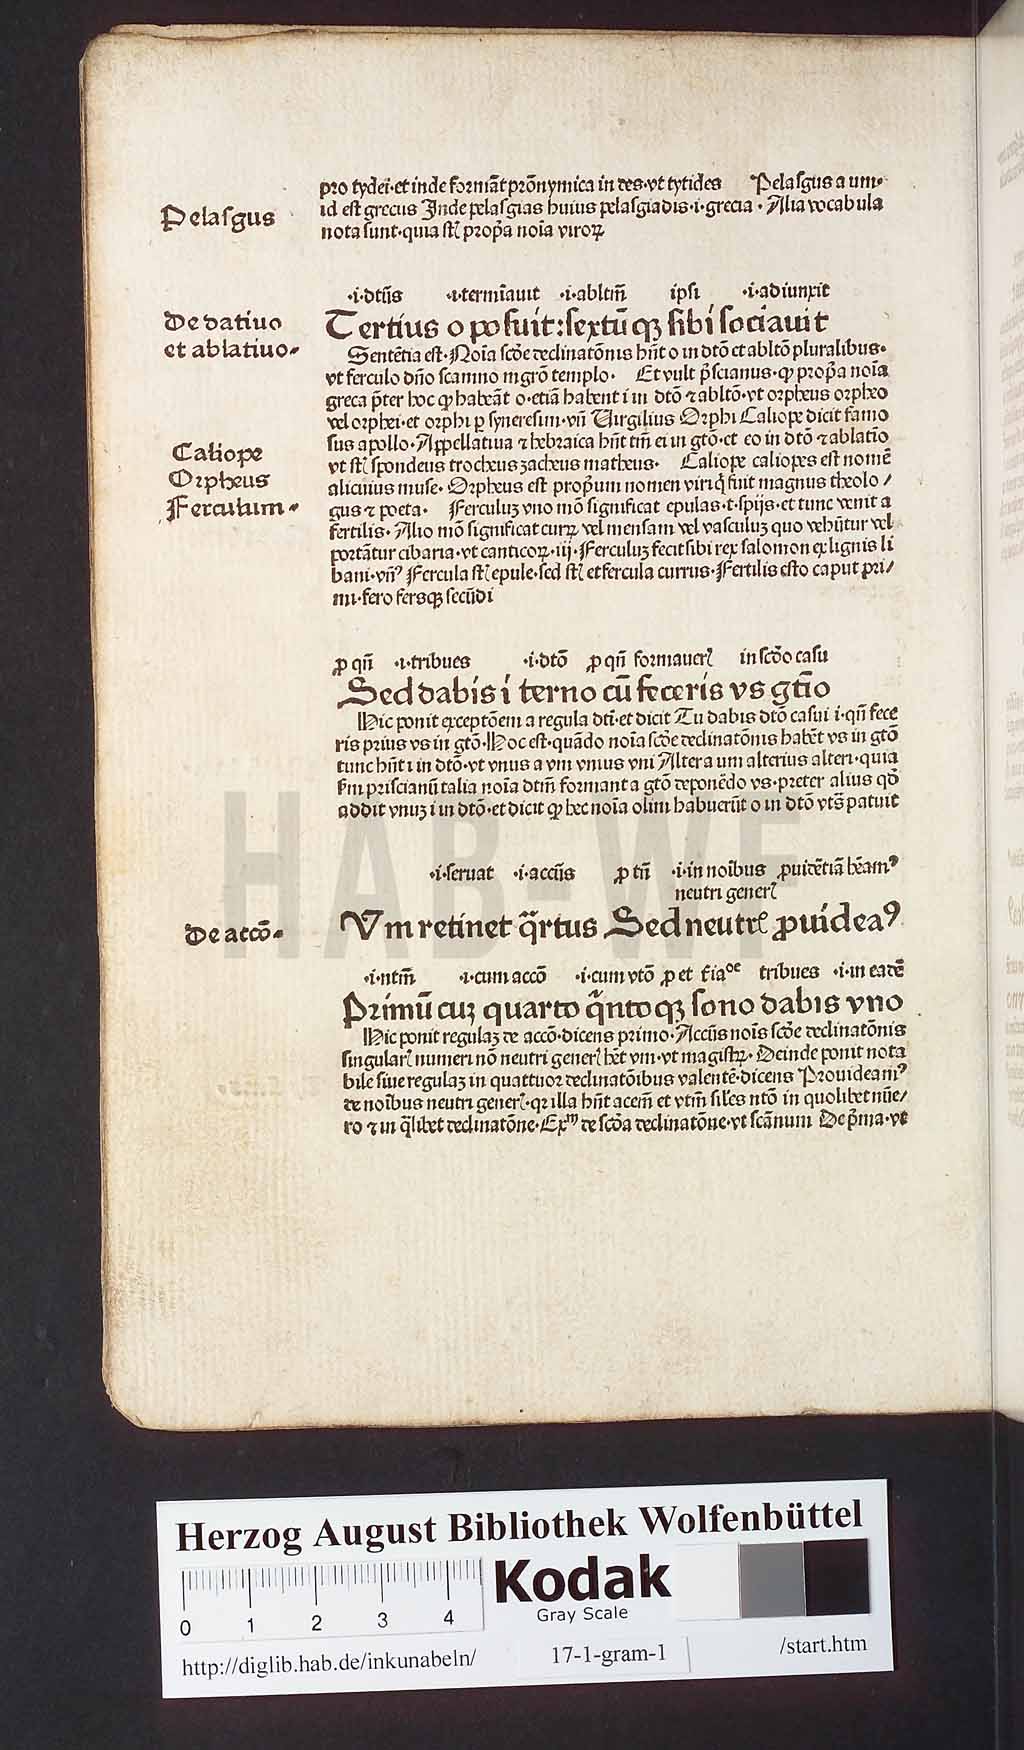 pro tydei·et inde formāt prōnymica in des·vt tytides Pelasgus a um·
Pelasgus
id est grecus Inde pelasgias huius pelasgiadis·i·grecia· Alia vocabula
nota sunt·quia st̄ propͣa noīa viroꝝ
·i·dtiīs ·i·termīauit ·i·abltm̄ ipsi ·i·adiunxit
De datiuo
et ablatiuo·
Tertius o posuit:sextū qꝫ sibi sociauit
Sentētia est·Noīa scd̄e declinatōnis hn̄t o in dtō et abltō pluralibus·
vt ferculo dn̄o scamno mgrō templo· Et vult pͥscianus·ꝙ propͣa noīa
greca p̄ter hoc ꝙ habeāt o·etiā habent i in dtō ⁊ abltō·vt orpheus orpheo
vel orphei·et orphi ꝑ syneresim·vn̄ Virgilius Orphi Caliope dicit famo
sus apollo·Appellatiua ⁊ hebraica hn̄t tm̄ ei in gtō·et eo in dtō ⁊ ablatīo
Caliope
Orpheus
Ferculum·
vt st̄ spondeus trocheus zacheus matheus· Caliope caliopes est nomē
alicuius muse· Orpheus est propͥum nomen viri qͥ fuit magnus theolo/
gus ⁊ poeta· Ferculuꝫ vno mō significat epulas·t·spijs·et tunc venit a
fertilis· Alio mō significat curꝝ vel mensam vel vasculuꝫ quo vehūtur vel
portātur cibaria·vt canticoꝝ·iij·Ferculuꝫ fecit sibi rex salomon ex lignis li
bani·vn̄ꝰ Fercula st̄ epule·sed st̄ et fercula currus·Fertilis esto caput pri/
mi·fero fersqꝫ secūdi
ꝓ qn̄ ·i·tribues ·i·dtō ꝓ qn̄ formauerꝭ in scd̄o casu
Sed dabis i terno cū feceris vs gtīo
Hic ponit exceptōem a regula dti·et dicit Tu dabis dtō casui i·qn̄ fece
ris prius vs in gtō·Hoc est·quādo noīa scd̄e declinatōnis habēt vs in gtō
tunc hn̄t i in dtō·vt vnus a vm vnius vni Altera um alterius alteri·quia
scd̄m priscianū talia noīa dtm̄ formant a gtō deponēdo vs·preter alius qd̄
addit vnuꝫ i in dtō·et dicit ꝙ hec noīa olim habuerūt o in dtō vts̄ patuit
·i·seruat ·i·acciīs ꝓ tn̄ ·i·in noībus ꝓuidētiā hēamꝰ
neutri generꝭ
De accō·
Vm retinet qͣrtus Sed neutrꝭ ꝓuideaꝰ
·i·ntm̄ ·i·cum accō ·i·cum vtō ꝓ et tribues ·i·in eadē
Primū cuꝫ quarto qͥntoqꝫ sono dabis vno
Hic ponit regulaꝫ de accō·dicens primo·Acciīs noīs scd̄e declinatōnis
singularꝭ numeri nō neutri generꝭ hēt vm·vt magistꝝ·Deinde ponit nota
bile siue regulaꝫ in quattuor declinatōibus valentē·dicens Prouideamꝰ
de noībus neutri generꝭ·qꝛ illa hn̄t acem̄ et vtm̄ siłes ntō in quolibet nūe/
ro ⁊ in qͣlibet declinatōne·Exᵐ de scd̄a declinatōne·vt scānum De pͥma·vt
HAB-WF
Herzog August Bibliothek Wolfenbüttel
Kodak
Gray Scale
0 1 2 3 4
http://diglib.hab.de/inkunabeln/ 17-1-gram-1 /start.htm